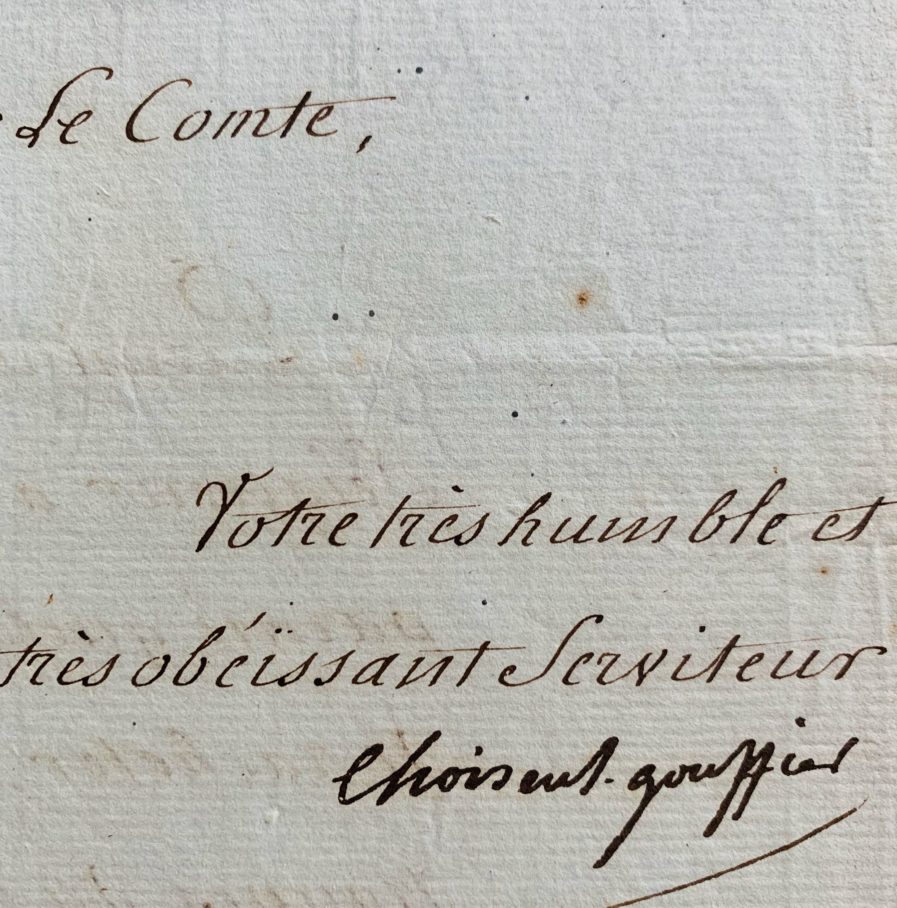 Le Comte,
Votre très humble et
très obéïssant Serviteur
Choiseul-gouffier